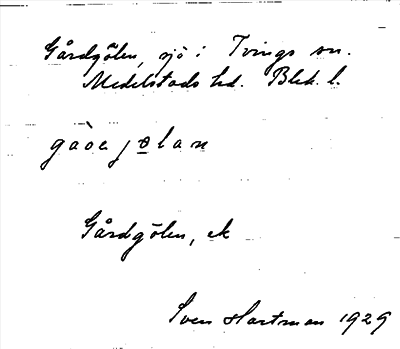 Gårdgölen, sjö i Tvings sn.
Medelstads hd. Blek. l.
Gårdgölen, ek
Sven Hartman 1929